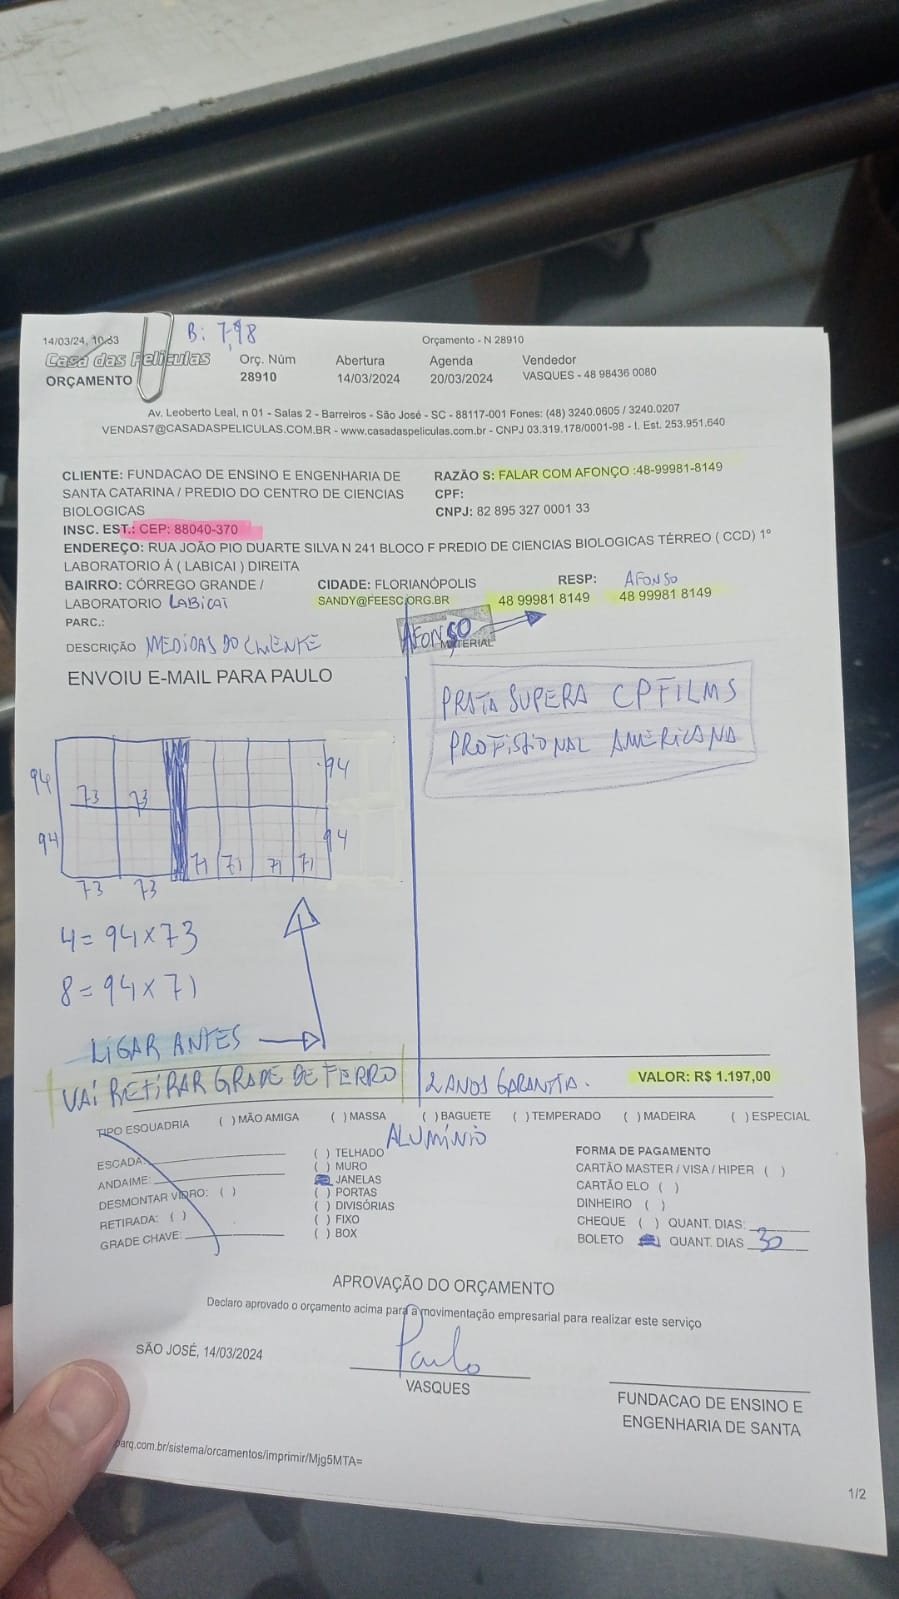 14/03/24, 10:33
B: 7,98
Orçamento - N 28910
Casa das Películas
ORÇAMENTO
Orç. Núm
28910
Abertura
14/03/2024
Agenda
20/03/2024
Vendedor
VASQUES - 48 98436 0080
Av. Leoberto Leal, n 01 - Salas 2 - Barreiros - São José - SC - 88117-001 Fones: (48) 3240.0605 / 3240.0207
VENDAS7@CASADASPELICULAS.COM.BR - www.casadaspeliculas.com.br - CNPJ 03.319.178/0001-98 - I. Est. 253.951.640
CLIENTE: FUNDACAO DE ENSINO E ENGENHARIA DE
SANTA CATARINA / PREDIO DO CENTRO DE CIENCIAS
BIOLOGICAS
RAZÃO S: FALAR COM AFONÇO :48-99981-8149
CPF:
CNPJ: 82 895 327 0001 33
INSC. EST.: CEP: 88040-370
ENDEREÇO: RUA JOÃO PIO DUARTE SILVA N 241 BLOCO F PREDIO DE CIENCIAS BIOLOGICAS TÉRREO ( CCD) 1º
LABORATORIO Á ( LABICAI ) DIREITA
BAIRRO: CÓRREGO GRANDE /
LABORATORIO LABICAI
CIDADE: FLORIANÓPOLIS
SANDY@FEESC.ORG.BR
RESP: AFONSO
48 99981 8149 48 99981 8149
PARC.:
DESCRIÇÃO MEDIDAS DO CLIENTE
AFONSO
MATERIAL
ENVOIU E-MAIL PARA PAULO
PRATA SUPERA CPFILMS
PROFISSIONAL AMERICANA
94 94
73 73
94 94
71 71 71 71
73 73
4 = 94 x 73
8 = 94 x 71
LIGAR ANTES
VAI RETIRAR GRADE DE FERRO
2 ANOS GARANTIA.
VALOR: R$ 1.197,00
TIPO ESQUADRIA ( ) MÃO AMIGA ( ) MASSA ( ) BAGUETE ( ) TEMPERADO ( ) MADEIRA ( ) ESPECIAL
ALUMÍNIO
ESCADA:
ANDAIME:
DESMONTAR VIDRO: ( )
RETIRADA: ( )
GRADE CHAVE:
( ) TELHADO
( ) MURO
JANELAS
( ) PORTAS
( ) DIVISÓRIAS
( ) FIXO
( ) BOX
FORMA DE PAGAMENTO
CARTÃO MASTER / VISA / HIPER ( )
CARTÃO ELO ( )
DINHEIRO ( )
CHEQUE ( ) QUANT. DIAS:
BOLETO QUANT. DIAS 30
APROVAÇÃO DO ORÇAMENTO
Declaro aprovado o orçamento acima para a movimentação empresarial para realizar este serviço
SÃO JOSÉ, 14/03/2024
Paulo
VASQUES
FUNDACAO DE ENSINO E
ENGENHARIA DE SANTA
parq.com.br/sistema/orcamentos/imprimir/Mjg5MTA=
1/2